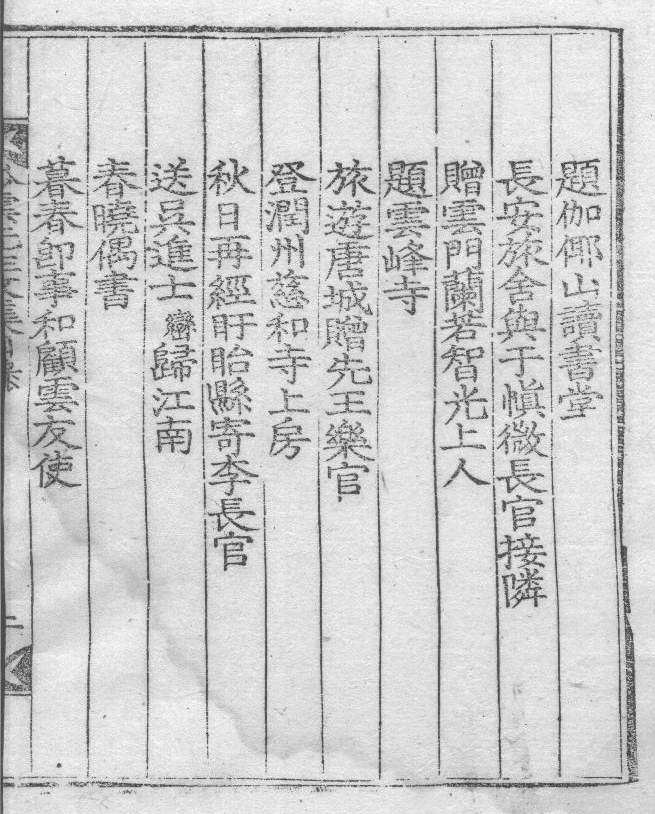 題伽倻山讀書堂
長安旅舍與于愼微長官接隣
贈雲門蘭若智光上人
題雲峰寺
旅遊唐城贈先王樂官
登潤州慈和寺上房
秋日再經盱眙縣寄李長官
送吳進士巒歸江南
春曉偶書
暮春卽事和顧雲友使
二